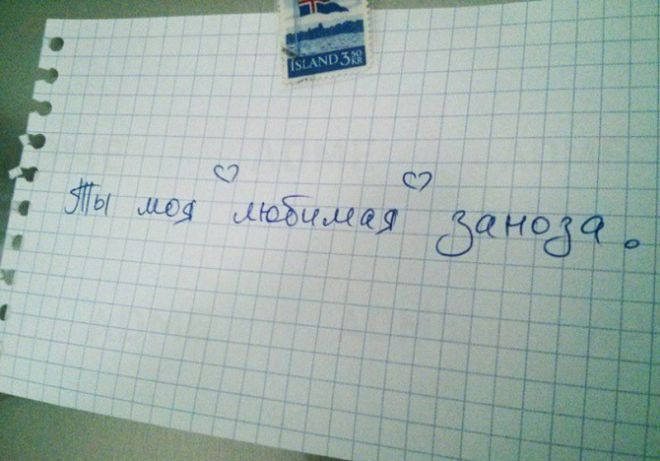 ÍSLAND 3 50 KR
Ты моя ♡ любимая ♡ заноза.